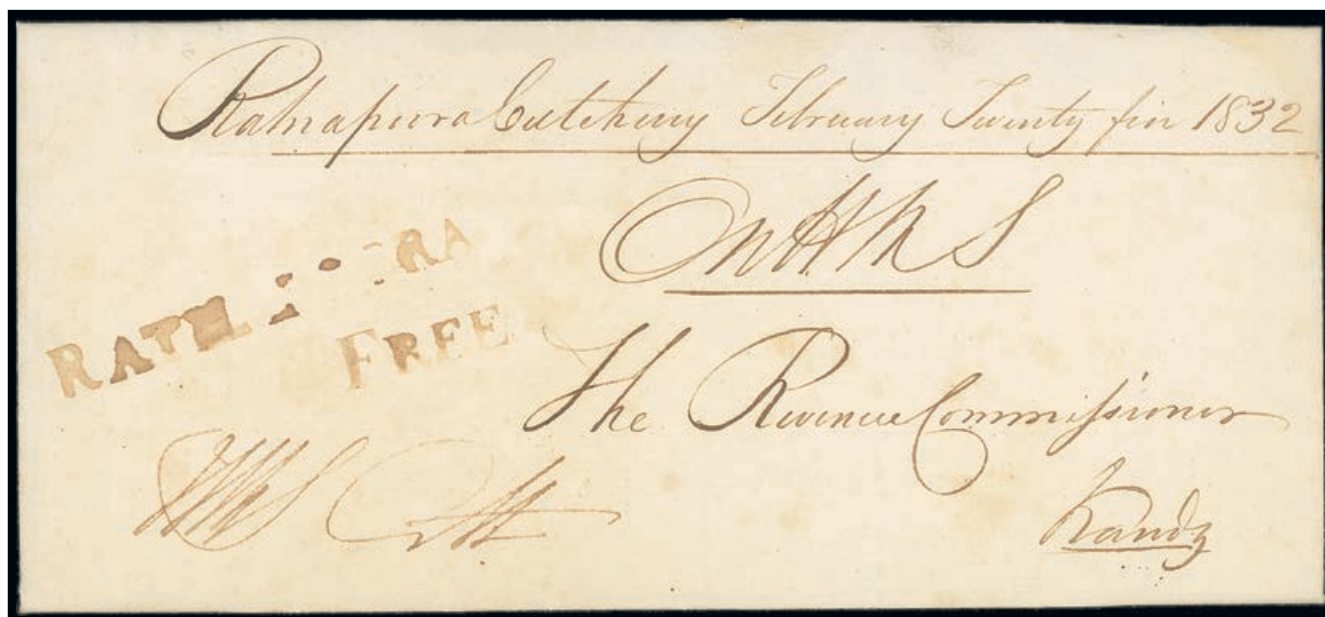 Ratnapura Cutchery February Twenty five 1832
On H M S
RATN RA
FREE
The Revenue Commissioner
Kandy